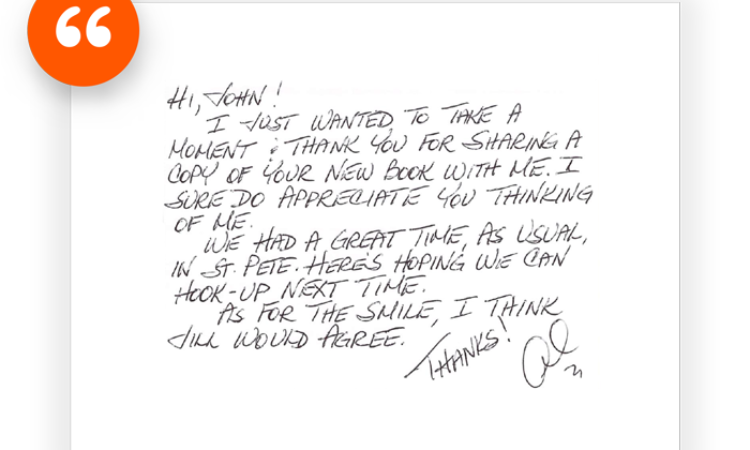 “
HI, JOHN!
I JUST WANTED TO TAKE A
MOMENT & THANK YOU FOR SHARING A
COPY OF YOUR NEW BOOK WITH ME. I
SURE DO APPRECIATE YOU THINKING
OF ME.
WE HAD A GREAT TIME, AS USUAL,
IN ST. PETE. HERE'S HOPING WE CAN
HOOK-UP NEXT TIME.
AS FOR THE SMILE, I THINK
JILL WOULD AGREE.
THANKS!